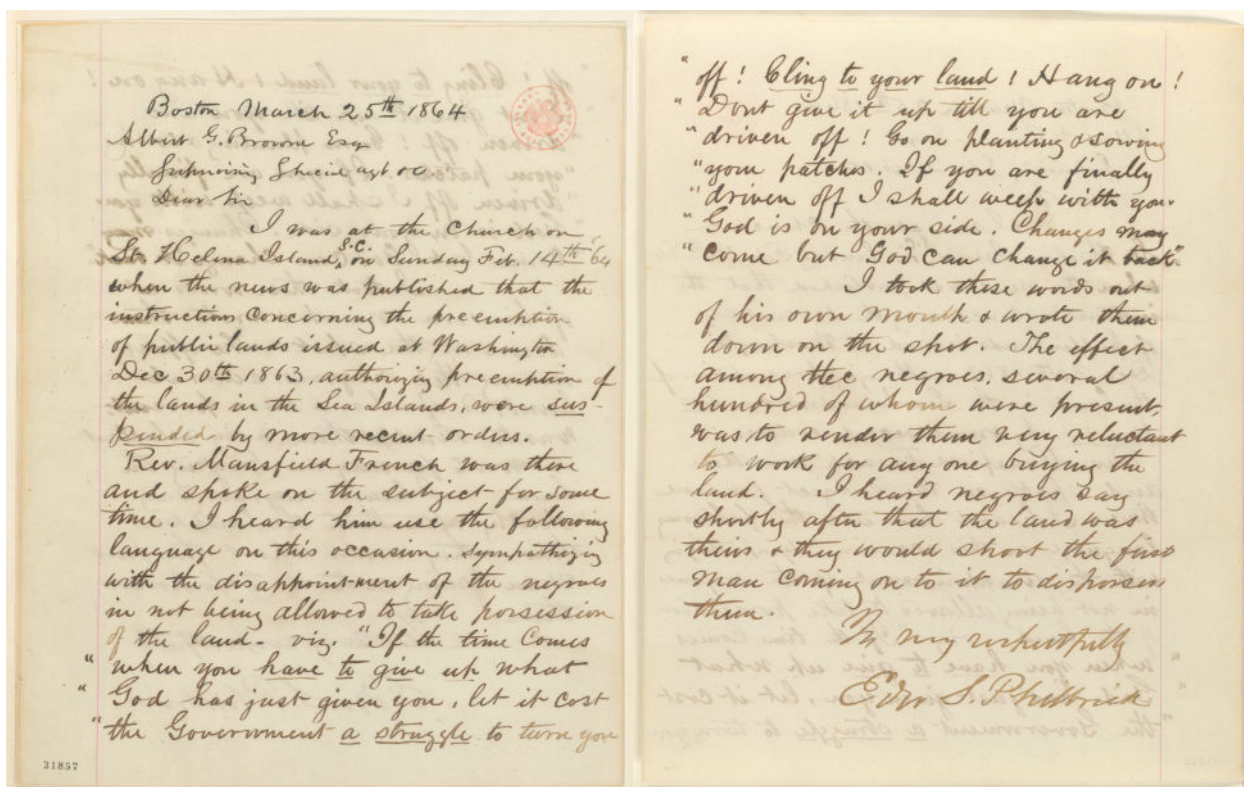 Boston March 25th 1864
Albert G. Browne Esq
Supervising Special agt &c
Dear Sir
I was at the Church on
St. Helena Island, S.C. on Sunday Feb. 14th '64
when the news was published that the
instructions concerning the preemption
of public lands issued at Washington
Dec 30th 1863, authorizing preemption of
the lands in the Sea Islands, were sus-
pended by more recent orders.
Rev. Mansfield French was there
and spoke on the subject for some
time. I heard him use the following
language on this occasion. Sympathizing
with the disappointment of the negroes
in not being allowed to take possession
of the land - viz, "If the time comes
" when you have to give up what
" God has just given you, let it cost
" the Government a struggle to turn you
31857
" off! Cling to your land! Hang on!
" Dont give it up till you are
" driven off! Go on planting & sowing
" your patches. If you are finally
" driven off I shall weep with you.
" God is on your side. Changes may
" come but God can change it back"
I took these words out
of his own mouth & wrote them
down on the spot. The effect
among the negroes, several
hundred of whom were present,
was to render them very reluctant
to work for any one buying the
land. I heard negroes say
shortly after that the land was
theirs & they would shoot the first
man coming on to it to dispossess
them.
Yr very respectfully
Edw S. Philbrick